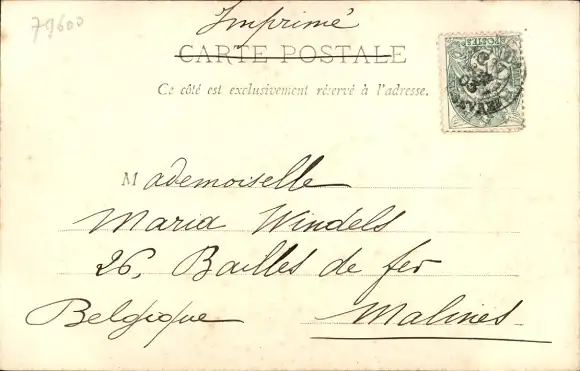 79600
Imprimé
CARTE POSTALE
Ce côté est exclusivement réservé à l'adresse.
POSTES
Mademoiselle
Maria Windels
26, Bailles de fer
Belgique Malines